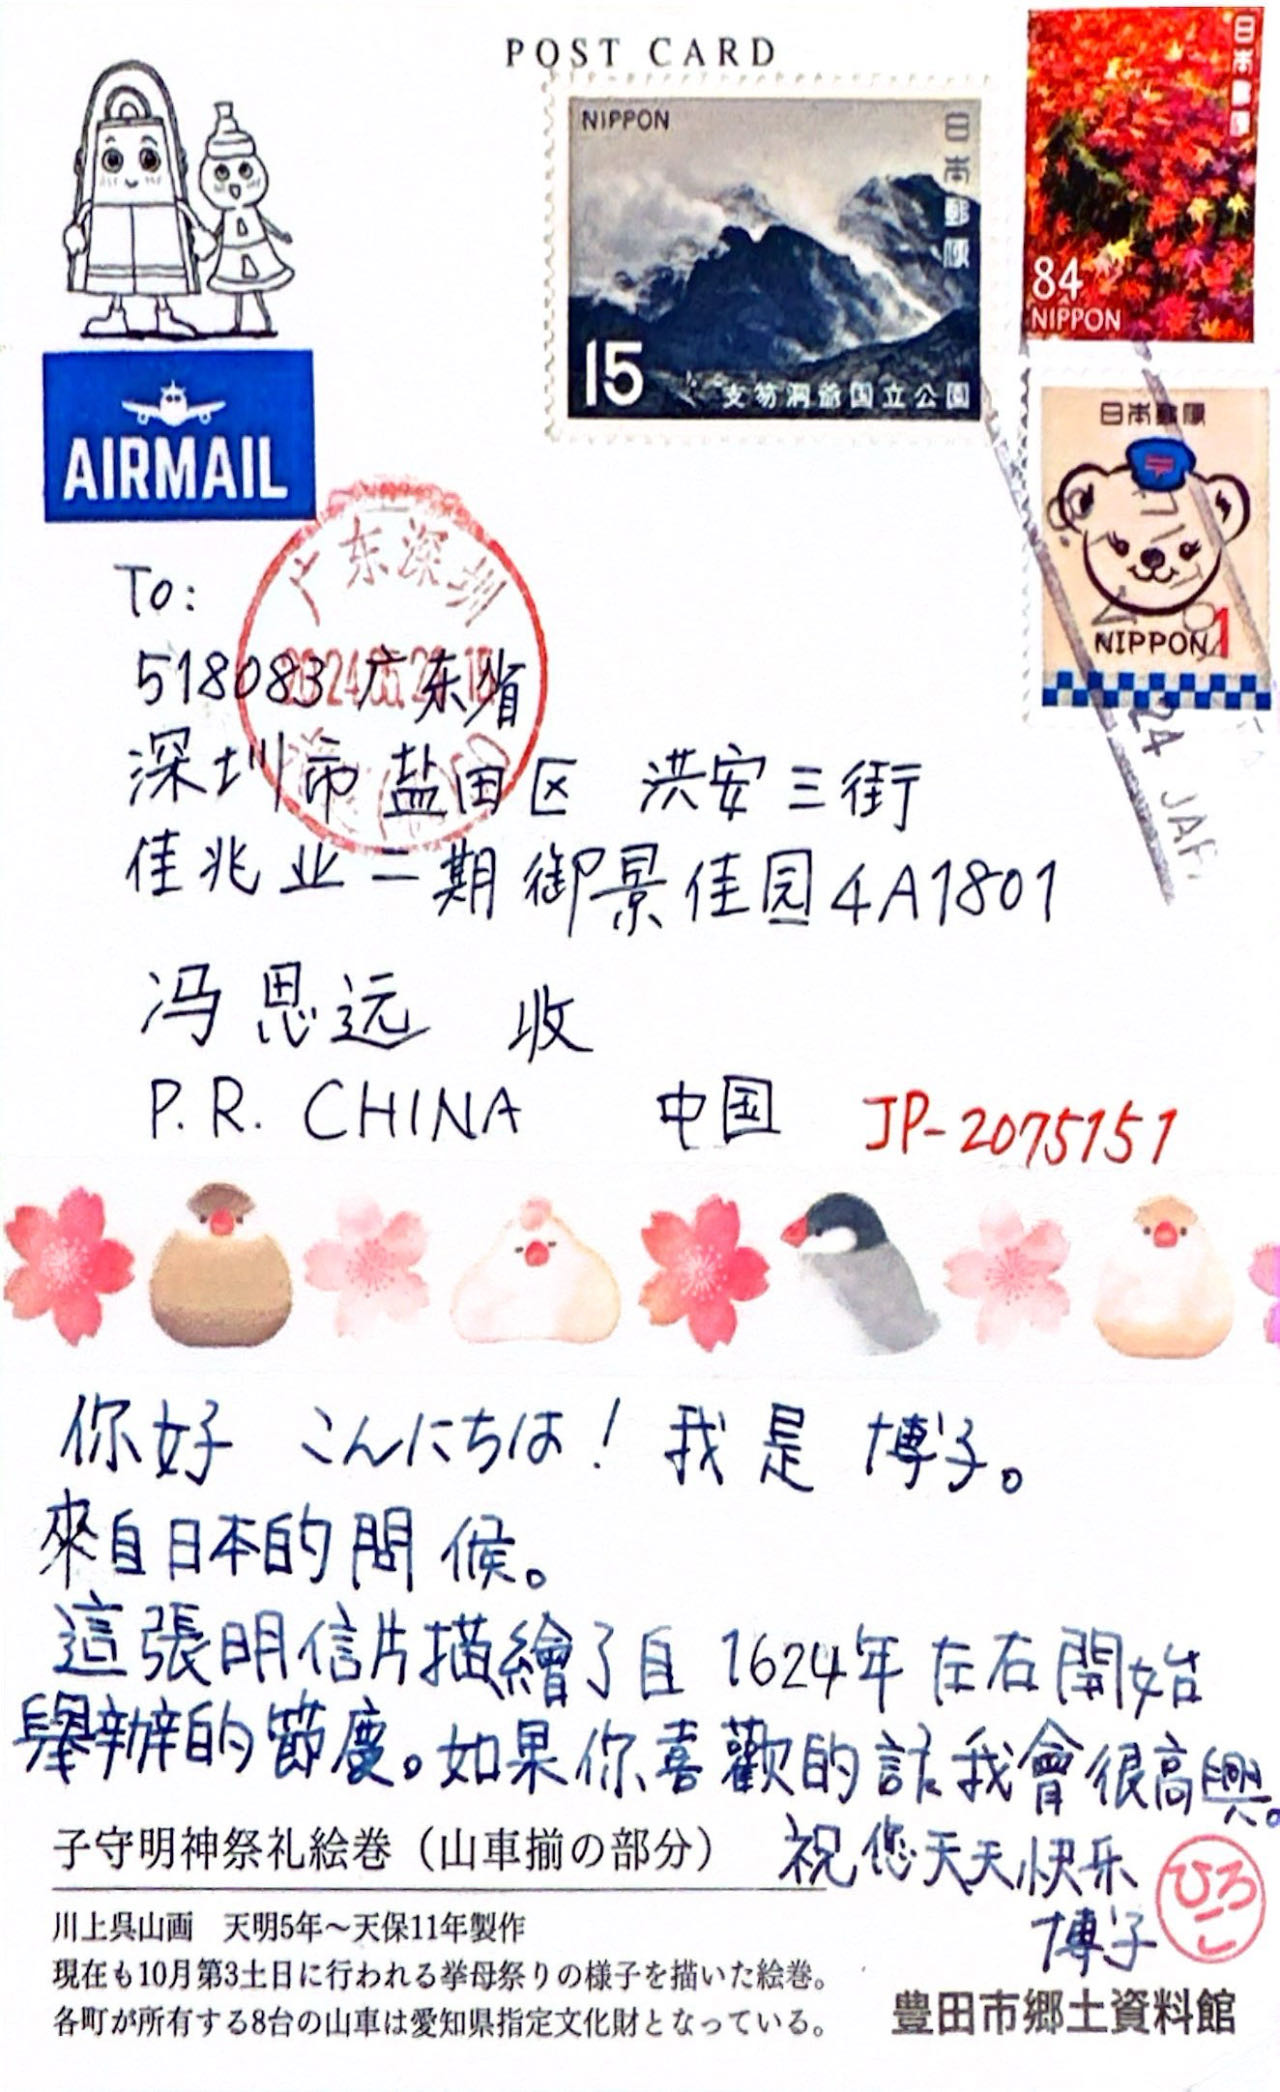 POST CARD
NIPPON
日本郵便
15
支笏洞爺国立公園
日本郵便
84
NIPPON
日本郵便
NIPPON 1
24 JAP
AIRMAIL
广东深圳
To:
518083 广东省
深圳市盐田区 洪安三街
佳兆业二期御景佳园4A1801
冯思远 收
P.R. CHINA 中国 JP-2075151
你好 こんにちは! 我是 博子。
來自日本的問候。
這張明信片描繪了自 1624年左右開始
舉辦的節慶。如果你喜歡的話我會很高興。
祝您天天快乐
博子
ひろこ
子守明神祭礼絵巻（山車揃の部分）
川上呉山画 天明5年～天保11年製作
現在も10月第3土日に行われる挙母祭りの様子を描いた絵巻。
各町が所有する8台の山車は愛知県指定文化財となっている。
豊田市郷土資料館